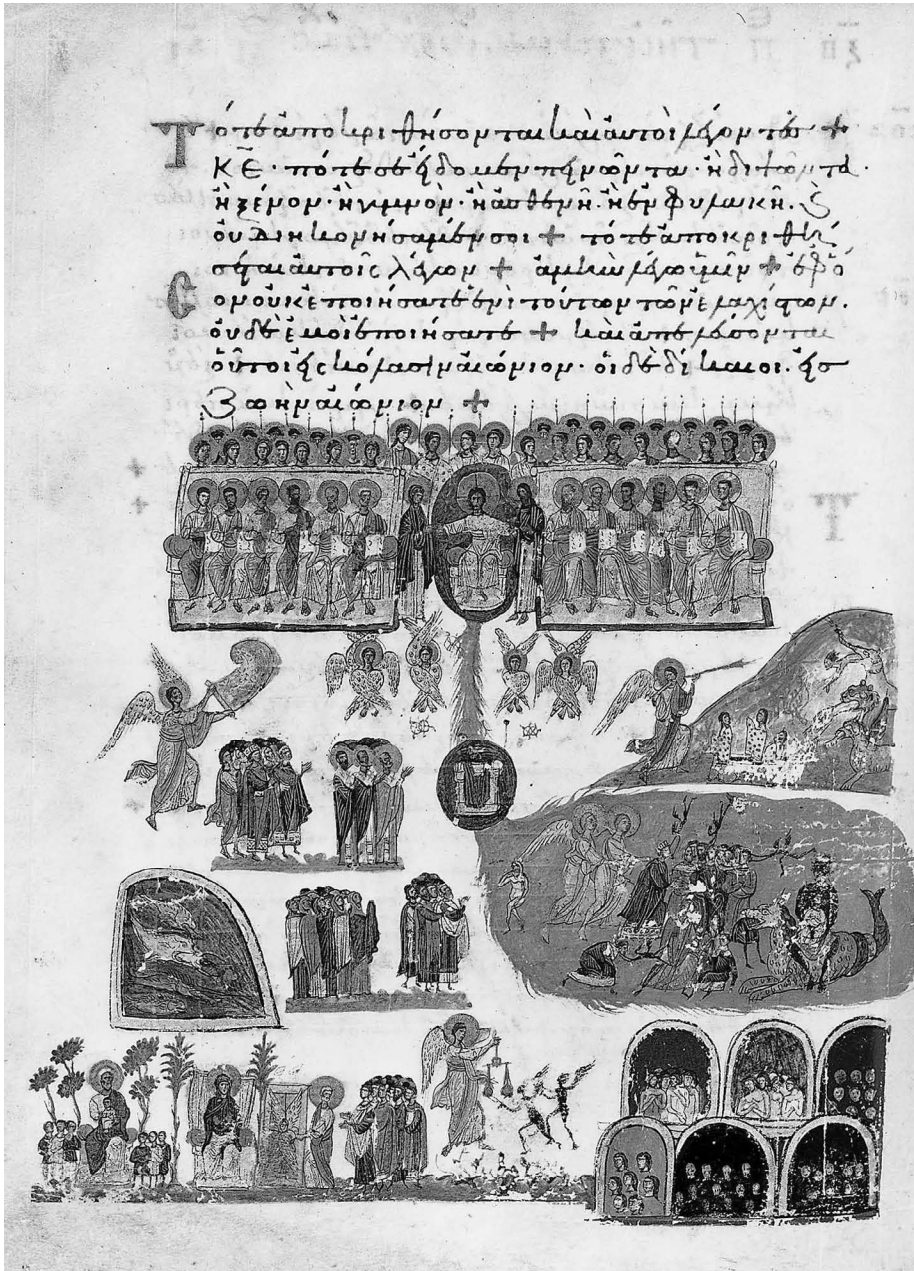 Τότε ἀποκριθήσονται καὶ αὐτοὶ λέγοντες +
Κ̅Ε̅· πότε σὲ εἴδομεν πεινῶντα· ἢ διψῶντα·
ἢ ξένον· ἢ γυμνὸν· ἢ ἀσθενῆ. ἢ ἐν φυλακῆ. ϗ
οὐ διηκονήσαμέν σοι + τότε ἀποκριθή
σεται αὐτοῖς λέγων + ἀμὴν λέγω ὑμῖν + ἐφ ὅ
σον οὐκ ἐποιήσατε ἑνὶ τούτων τῶν ἐλαχίστων.
οὐδὲ ἐμοὶ ἐποιήσατε + καὶ ἀπελεύσονται
οὗτοι εἰς κόλασιν αἰώνιον· οἱ δὲ δίκαιοι. εἰς
ζωὴν αἰώνιον +